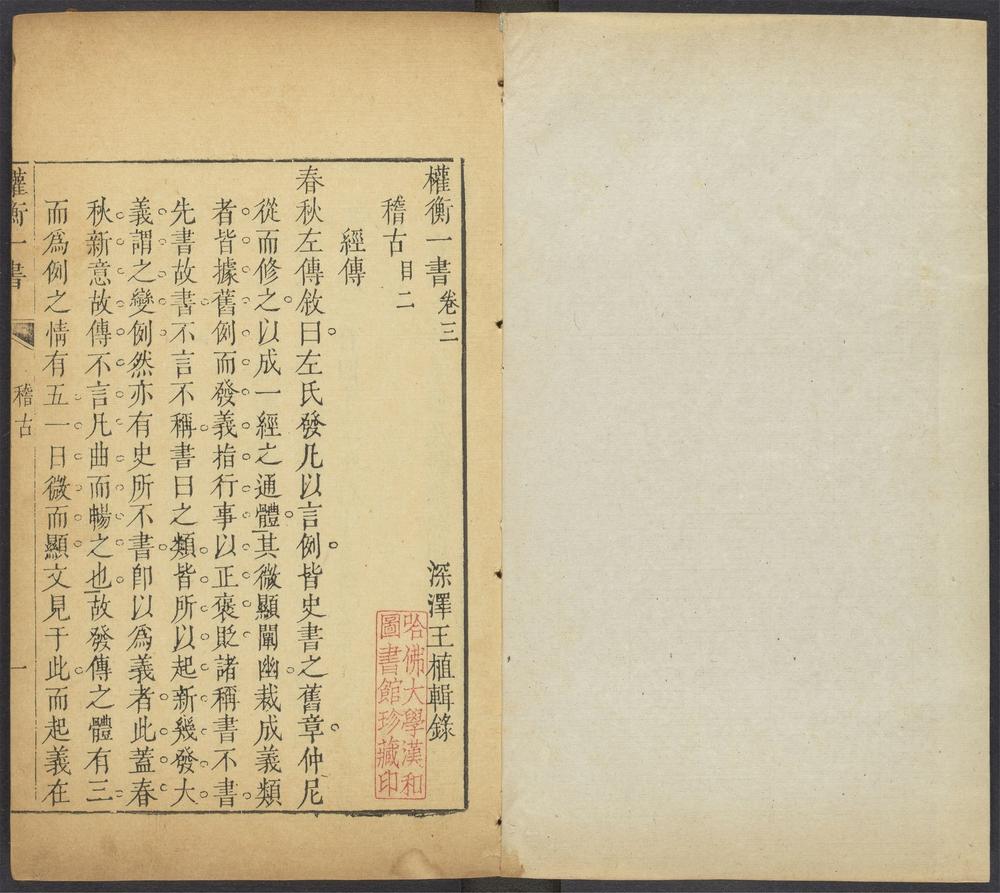 權衡一書卷三
深澤王植輯錄
哈佛大學漢和
圖書館珍藏印
稽古目二
經傳
春秋左傳敘曰左氏發凡以言例皆史書之舊章仲尼
從而修之以成一經之通體其微顯闡幽裁成義類
者皆據舊例而發義指行事以正褒貶諸稱書不書
先書故書不言不稱書曰之類皆所以起新幾發大
義謂之變例然亦有史所不書卽以爲義者此蓋春
秋新意故傳不言凡曲而暢之也故發傳之體有三
而爲例之情有五一曰微而顯文見于此而起義在
權衡一書
稽古
一